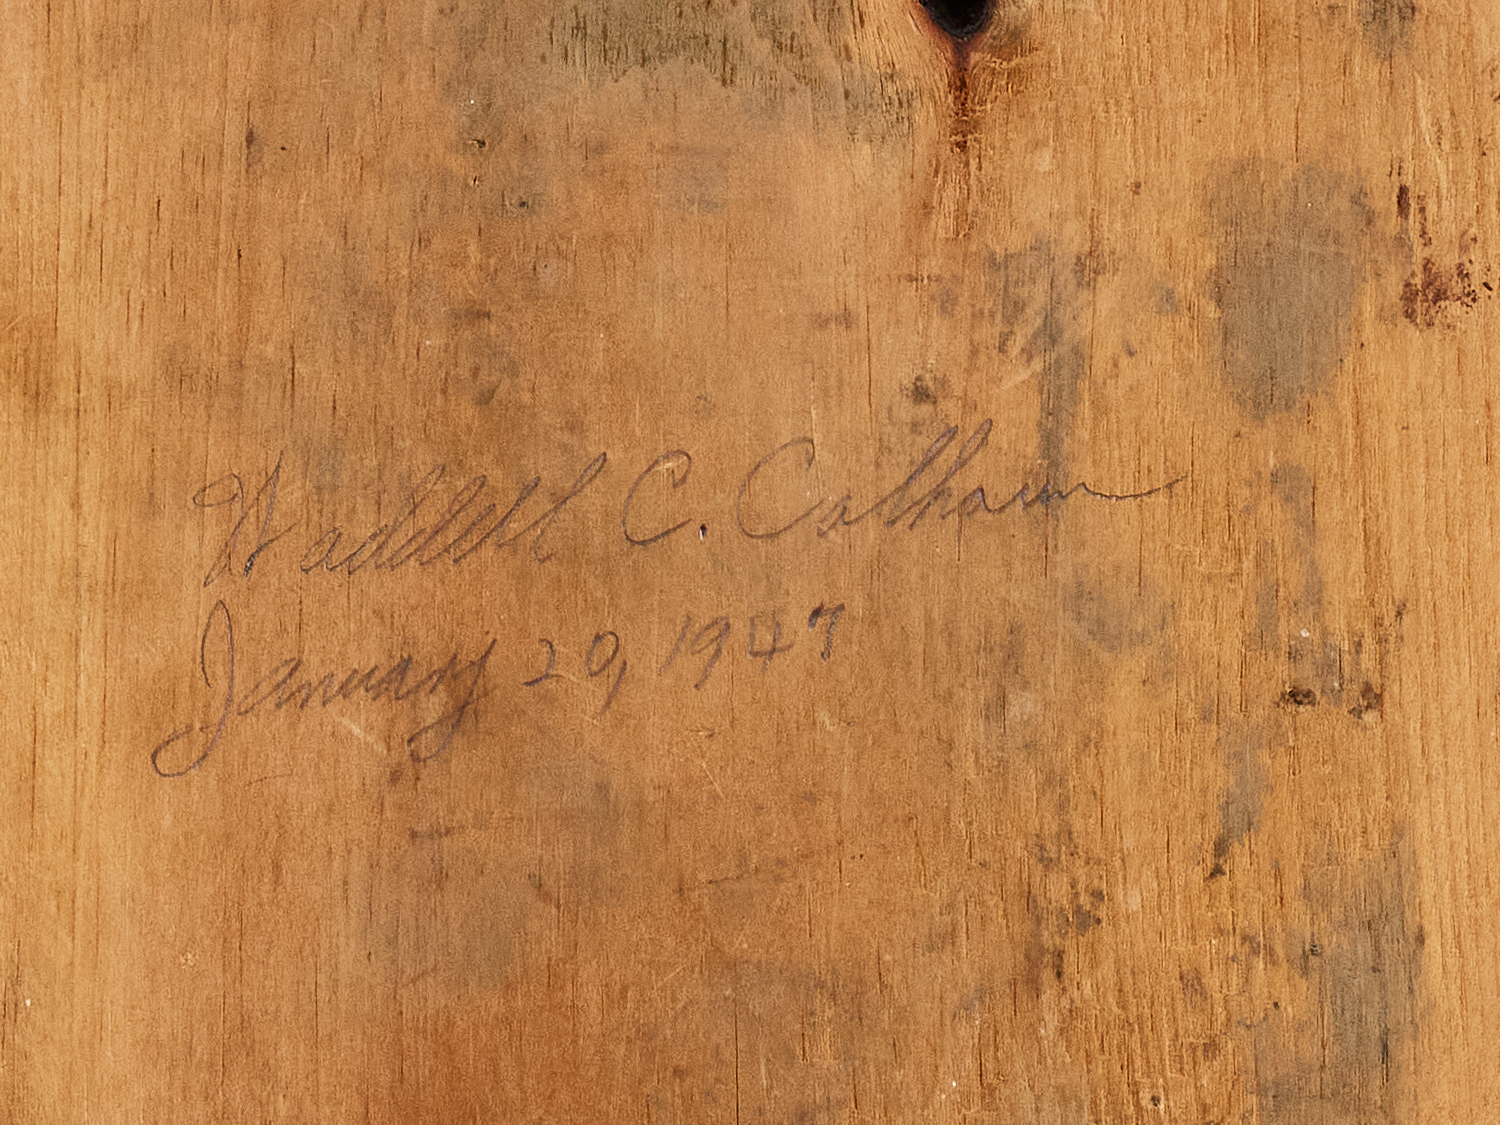 Waddell C. Calhoun
January 20, 1947